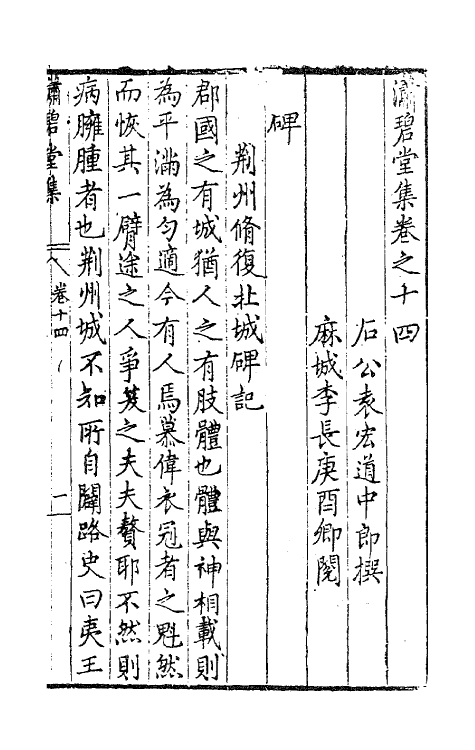 瀟碧堂集卷之十四
石公袁宏道中郎撰
麻城李長庚酉卿閱
碑
荆州脩復北城碑記
郡國之有城猶人之有肢體也體與神相載則
為平滿為勻適今有人焉慕偉衣冠者之魁然
而恢其一臂途之人爭笑之夫夫贅耶不然則
病臃腫者也荆州城不知所自闢路史曰夷王
瀟碧堂集
卷十四
一